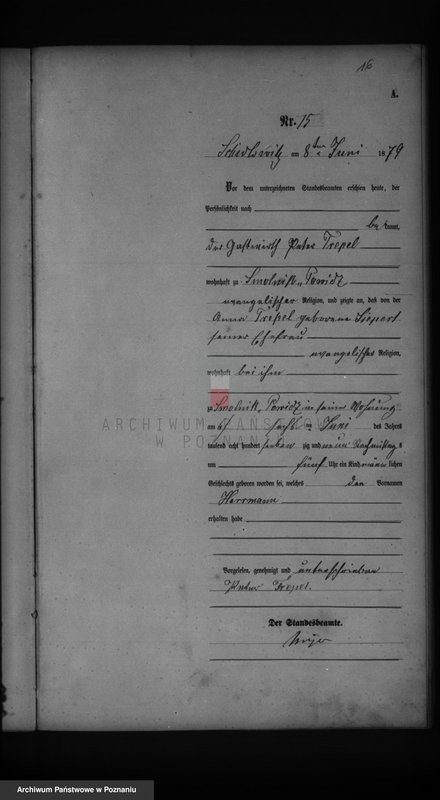 16
A.
Nr. 15
am 8ten Juni 1879
Vor dem unterzeichneten Standesbeamten erschien heute, der
Persönlichkeit nach
be kannt,
der Gastwirth Peter Trepel
wohnhaft zu Smolnik Powidz
evangelischer Religion, und zeigte an, daß von der
Anna Trepel geborene
seiner Ehefrau
evangelischer Religion,
wohnhaft bei ihm
zu Smolnik Powidz in seiner Wohnung
am 6 Juni des Jahres
tausend acht hundert sieben zig und neun Nachmittags
um fünf Uhr ein Kind männ lichen
Geschlechts geboren worden sei, welches den Vornamen
Herrmann
erhalten habe
Vorgelesen, genehmigt und unterschrieben
Peter Trepel.
Der Standesbeamte.
ARCHIWUM PAŃSTWOWE
W POZNANIU
Archiwum Państwowe w Poznaniu